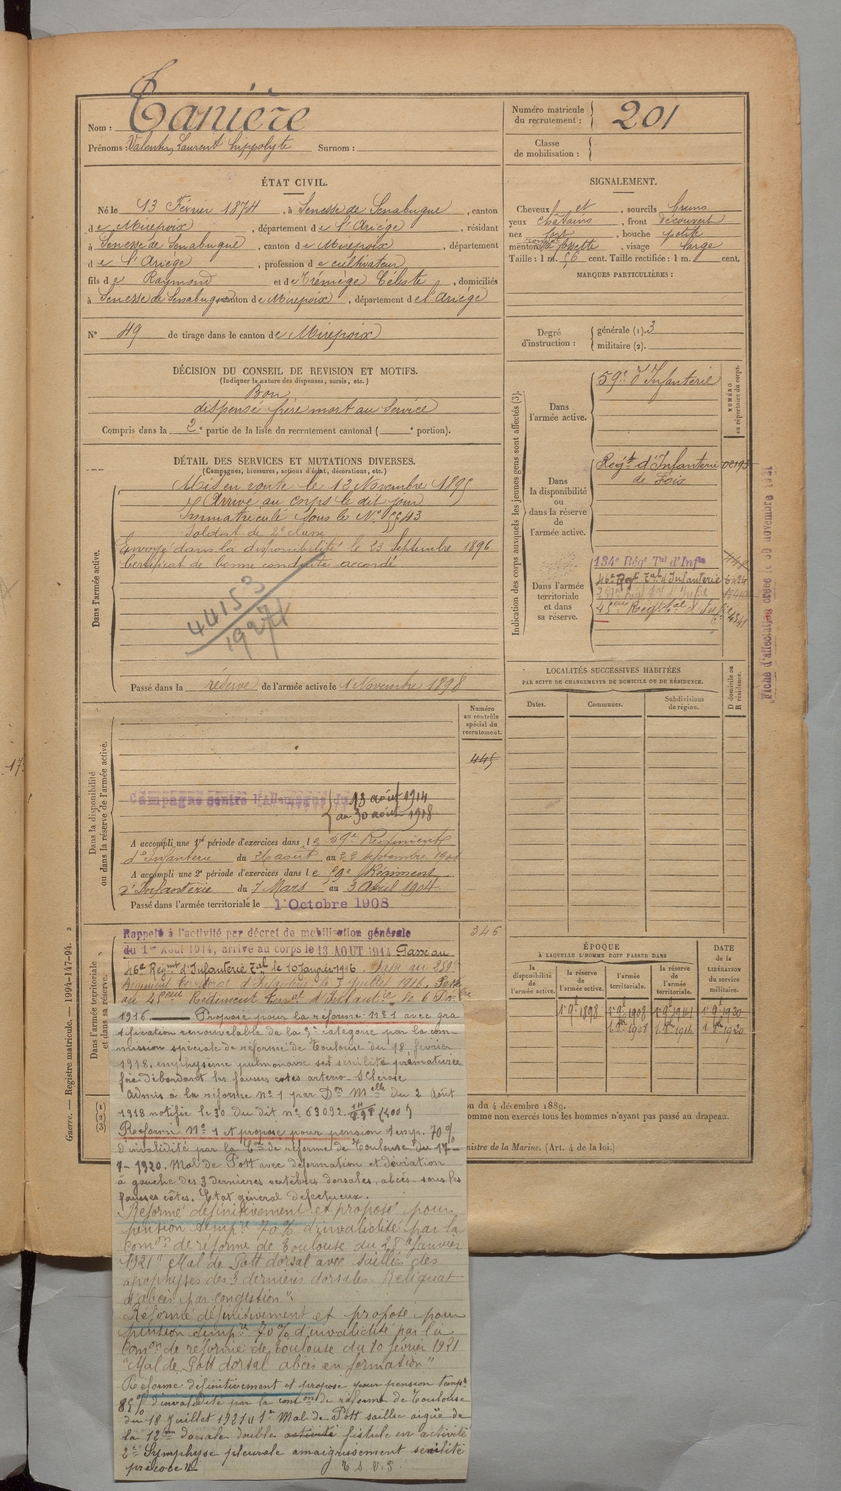 Nom : Tanière
Prénoms : Valentin, Laurent hippolyte Surnom :
Numéro matricule du recrutement : 201
Classe de mobilisation :
ÉTAT CIVIL.
Né le 13 Février 1874, à Senesse de Senabugue, canton
de Mirepoix, département de l'Ariége, résidant
à Senesse de Senabugue, canton de Mirepoix, département
de l'Ariége, profession de cultivateur
fils de Raymond et de Trémège Céleste, domiciliés
à Senesse de Senabugue canton de Mirepoix, département de l'Ariége
N° 49 de tirage dans le canton de Mirepoix
SIGNALEMENT.
Cheveux et sourcils bruns
yeux chatains, front découvert
nez fort, bouche petite
menton fossette, visage large
Taille : 1 m. 56 cent. Taille rectifiée : 1 m. cent.
MARQUES PARTICULIÈRES :
Degré d'instruction : générale (1). 3
militaire (2).
DÉCISION DU CONSEIL DE REVISION ET MOTIFS.
(Indiquer la nature des dispenses, sursis, etc.)
Bon
dispensé frère mort au service
Compris dans la 2e partie de la liste du recrutement cantonal ( e portion).
DÉTAIL DES SERVICES ET MUTATIONS DIVERSES.
(Campagnes, blessures, actions d'éclat, décorations, etc.)
Dans l'armée active.
Mis en route le 12 Novembre 1895
Arrivé au corps le dit jour
immatriculé sous le N°
Soldat de 2e classe
Envoyé dans la disponibilité le 23 Septembre 1896
Certificat de bonne conduite accordé
44153
Passé dans la réserve de l'armée active le 1 Novembre 1898
Indication des corps auxquels les jeunes gens sont affectés (3).
NUMÉRO au répertoire du corps.
Dans l'armée active.
59e d'Infanterie
Dans la disponibilité ou dans la réserve de l'armée active.
Regt d'Infanterie
de Foix
Dans l'armée territoriale et dans sa réserve.
134e Rég. Tal d'Infie
46e Regt Tal d'Infanterie
Fiche d'affectation
LOCALITÉS SUCCESSIVES HABITÉES
PAR SUITE DE CHANGEMENTS DE DOMICILE OU DE RÉSIDENCE.
Dates.
Communes.
Subdivisions de région.
D domicile ou R résidence.
Numéro au contrôle spécial du recrutement.
445
Dans la disponibilité ou dans la réserve de l'armée active.
Campagne contre l'Allemagne du 13 août 1914
au 30 août 1918
A accompli une 1re période d'exercices dans le 59e Régiment
d'Infanterie du 26 août au
A accompli une 2e période d'exercices dans le 59e Régiment
d'Infanterie du 7 Mars au 3 Avril 1904
Passé dans l'armée territoriale le 1 Octobre 1908
346
Dans l'armée territoriale et dans sa réserve.
Rappelé à l'activité par décret de mobilisation générale
du 1er Août 1914, arrivé au corps le 13 AOUT 1914 Passé au
46e Régmt d'Infanterie Tal le 10 Janvier 1916.
1916 Proposé pour la réforme n° 1 avec gra
tification renouvelable de la 3e catégorie par la com
mission spéciale de réforme de Toulouse du 18 février
1918. emphysème pulmonaire sénilité prématurée
foie débordant les fausses cotes arterio-sclerose
Admis à la réforme n° 1 par Don Melle du 2 Août
1918 notifiée le 30 du dit n° 63092
Reformé N° 1 et proposé pour pension temp. 70%
d'invalidité par la Com de réforme de Toulouse du 17-
1920. Mal de Pott avec déformation et déviation
à gauche des 3 dernieres vertèbres dorsales, abcès sous les
fausses cotes. Etat général defectueux.
Réformé définitivement et proposé pour
pension temp. 70% d'invalidité par la
Comon de réforme de Toulouse du 28 Janvier
1921 "Mal de Pott dorsal avec saillies des
apophyses des 3 dernieres dorsales. Reliquat
d'abcès par congestion".
Réformé définitivement et proposé pour
pension temp. 70% d'invalidité par la
Comon de réforme de Toulouse du 10 février 1921
"Mal de Pott dorsal abcès en formation"
Réformé définitivement et proposé pour pension temp.
85% d'invalidité par la comon de réforme de Toulouse
du 18 Juillet 1921 " 1° Mal de Pott saillie aigüe de
la 12e dorsale double activité fistule en activité
2° Symphyse pleurale amaigrissement sénilité
précoce"
T. S. V. P.
ÉPOQUE
À LAQUELLE L'HOMME DOIT PASSER DANS
la disponibilité de l'armée active.
la réserve de l'armée active.
l'armée territoriale.
la réserve de l'armée territoriale.
DATE de la LIBÉRATION du service militaire.
du 4 décembre 1889.
omme non exercés tous les hommes n'ayant pas passé au drapeau.
nistre de la Marine. (Art. 4 de la loi.)
Guerre. — Registre matricule. — 1994-147-94.